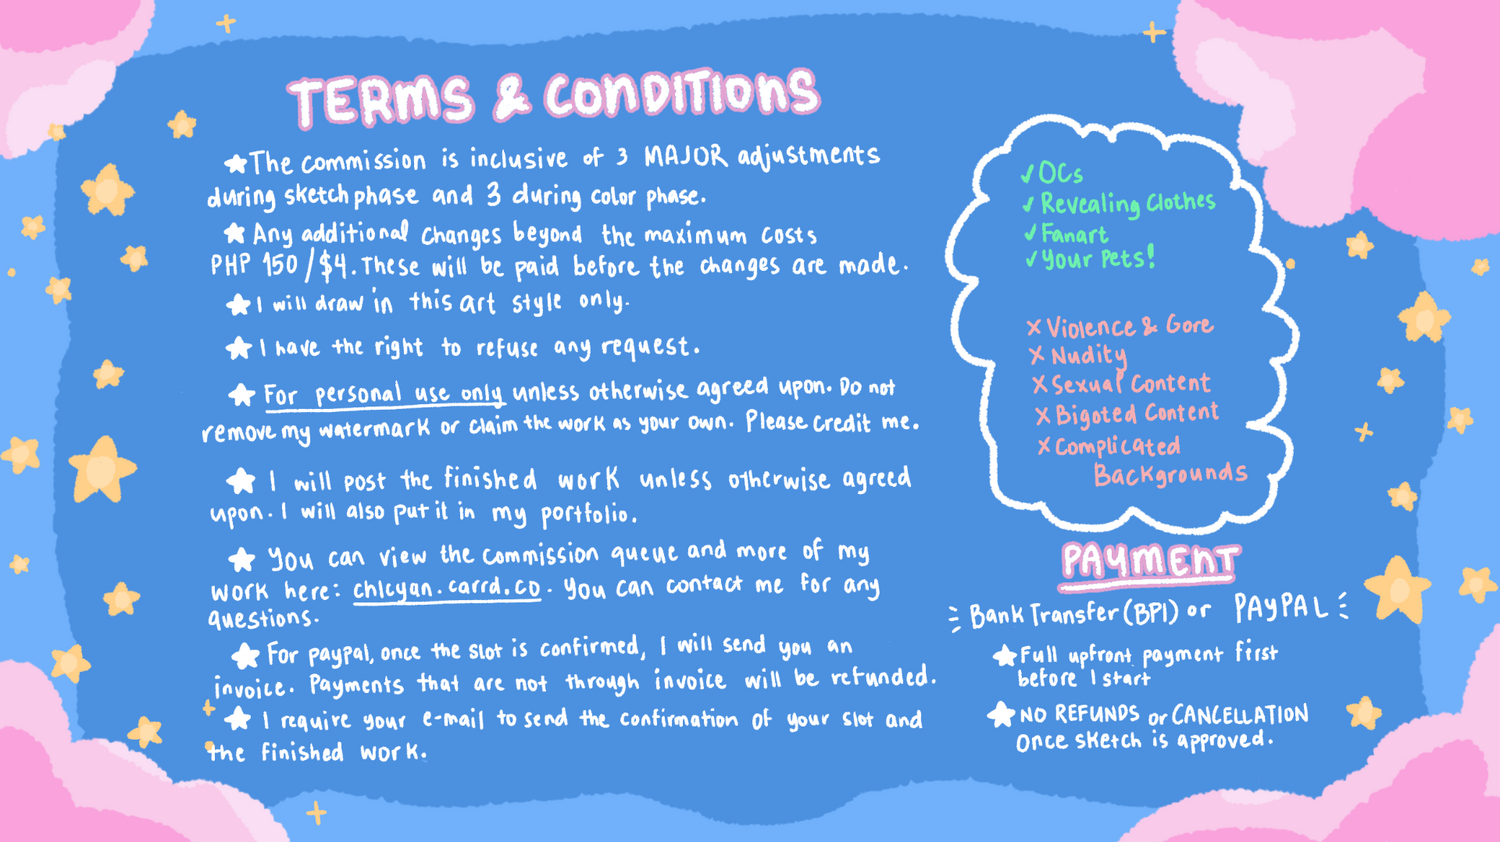 TERMS & CONDITIONS
The commission is inclusive of 3 MAJOR adjustments
during sketch phase and 3 during color phase.
Any additional changes beyond the maximum costs
PHP 150/$4. These will be paid before the changes are made.
I will draw in this art style only.
I have the right to refuse any request.
For personal use only unless otherwise agreed upon. Do not
remove my watermark or claim the work as your own. Please credit me.
I will post the finished work unless otherwise agreed
upon. I will also put it in my portfolio.
You can view the commission queue and more of my
work here: chlcyan.carrd.co. You can contact me for any
questions.
For paypal, once the slot is confirmed, I will send you an
invoice. Payments that are not through invoice will be refunded.
I require your e-mail to send the confirmation of your slot and
the finished work.
✓ OCs
✓ Revealing Clothes
✓ Fanart
✓ Your Pets!
X Violence & Gore
X Nudity
X Sexual Content
X Bigoted Content
X Complicated
Backgrounds
PAYMENT
Bank Transfer (BPI) or PAYPAL
Full upfront payment first
before I start
NO REFUNDS or CANCELLATION
Once sketch is approved.